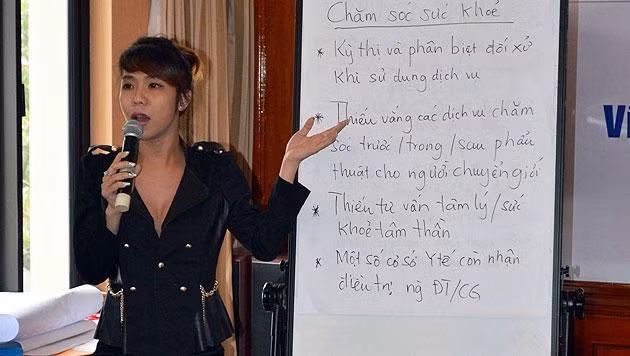 Chăm sóc sức khoẻ
* Kỳ thị và phân biệt đối xử
khi sử dụng dịch vụ
* Thiếu vắng các dịch vụ chăm
sóc trước / trong / sau phẩu
thuật cho người chuyển giới
* Thiếu tư vấn tâm lý / sức
khoẻ tâm thần
* Một số cơ sở Y tế còn nhận
điều trị ng ĐT/CG
Vi